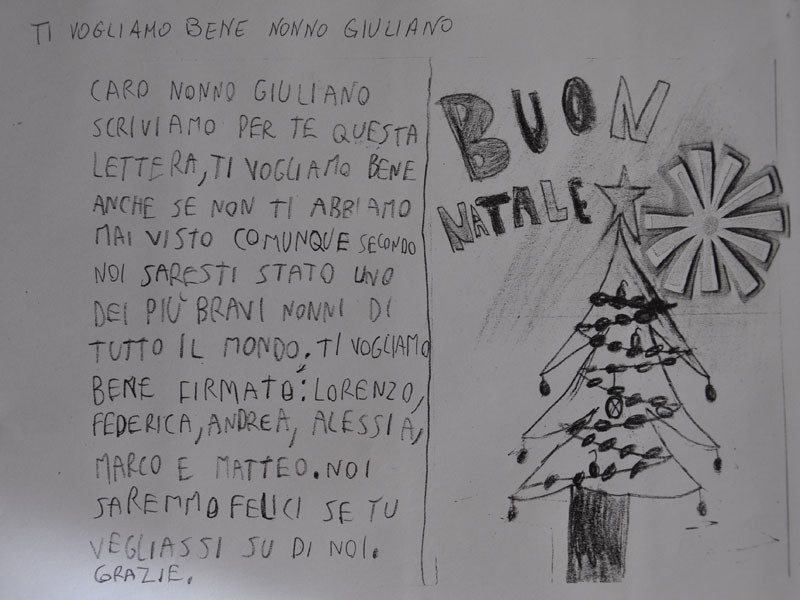 TI VOGLIAMO BENE NONNO GIULIANO
CARO NONNO GIULIANO
SCRIVIAMO PER TE QUESTA
LETTERA, TI VOGLIAMO BENE
ANCHE SE NON TI ABBIAMO
MAI VISTO COMUNQUE SECONDO
NOI SARESTI STATO UNO
DEI PIÙ BRAVI NONNI DI
TUTTO IL MONDO. TI VOGLIAMO
BENE FIRMATO: LORENZO,
FEDERICA, ANDREA, ALESSIA,
MARCO E MATTEO. NOI
SAREMMO FELICI SE TU
VEGLIASSI SU DI NOI.
GRAZIE.
BUON
NATALE